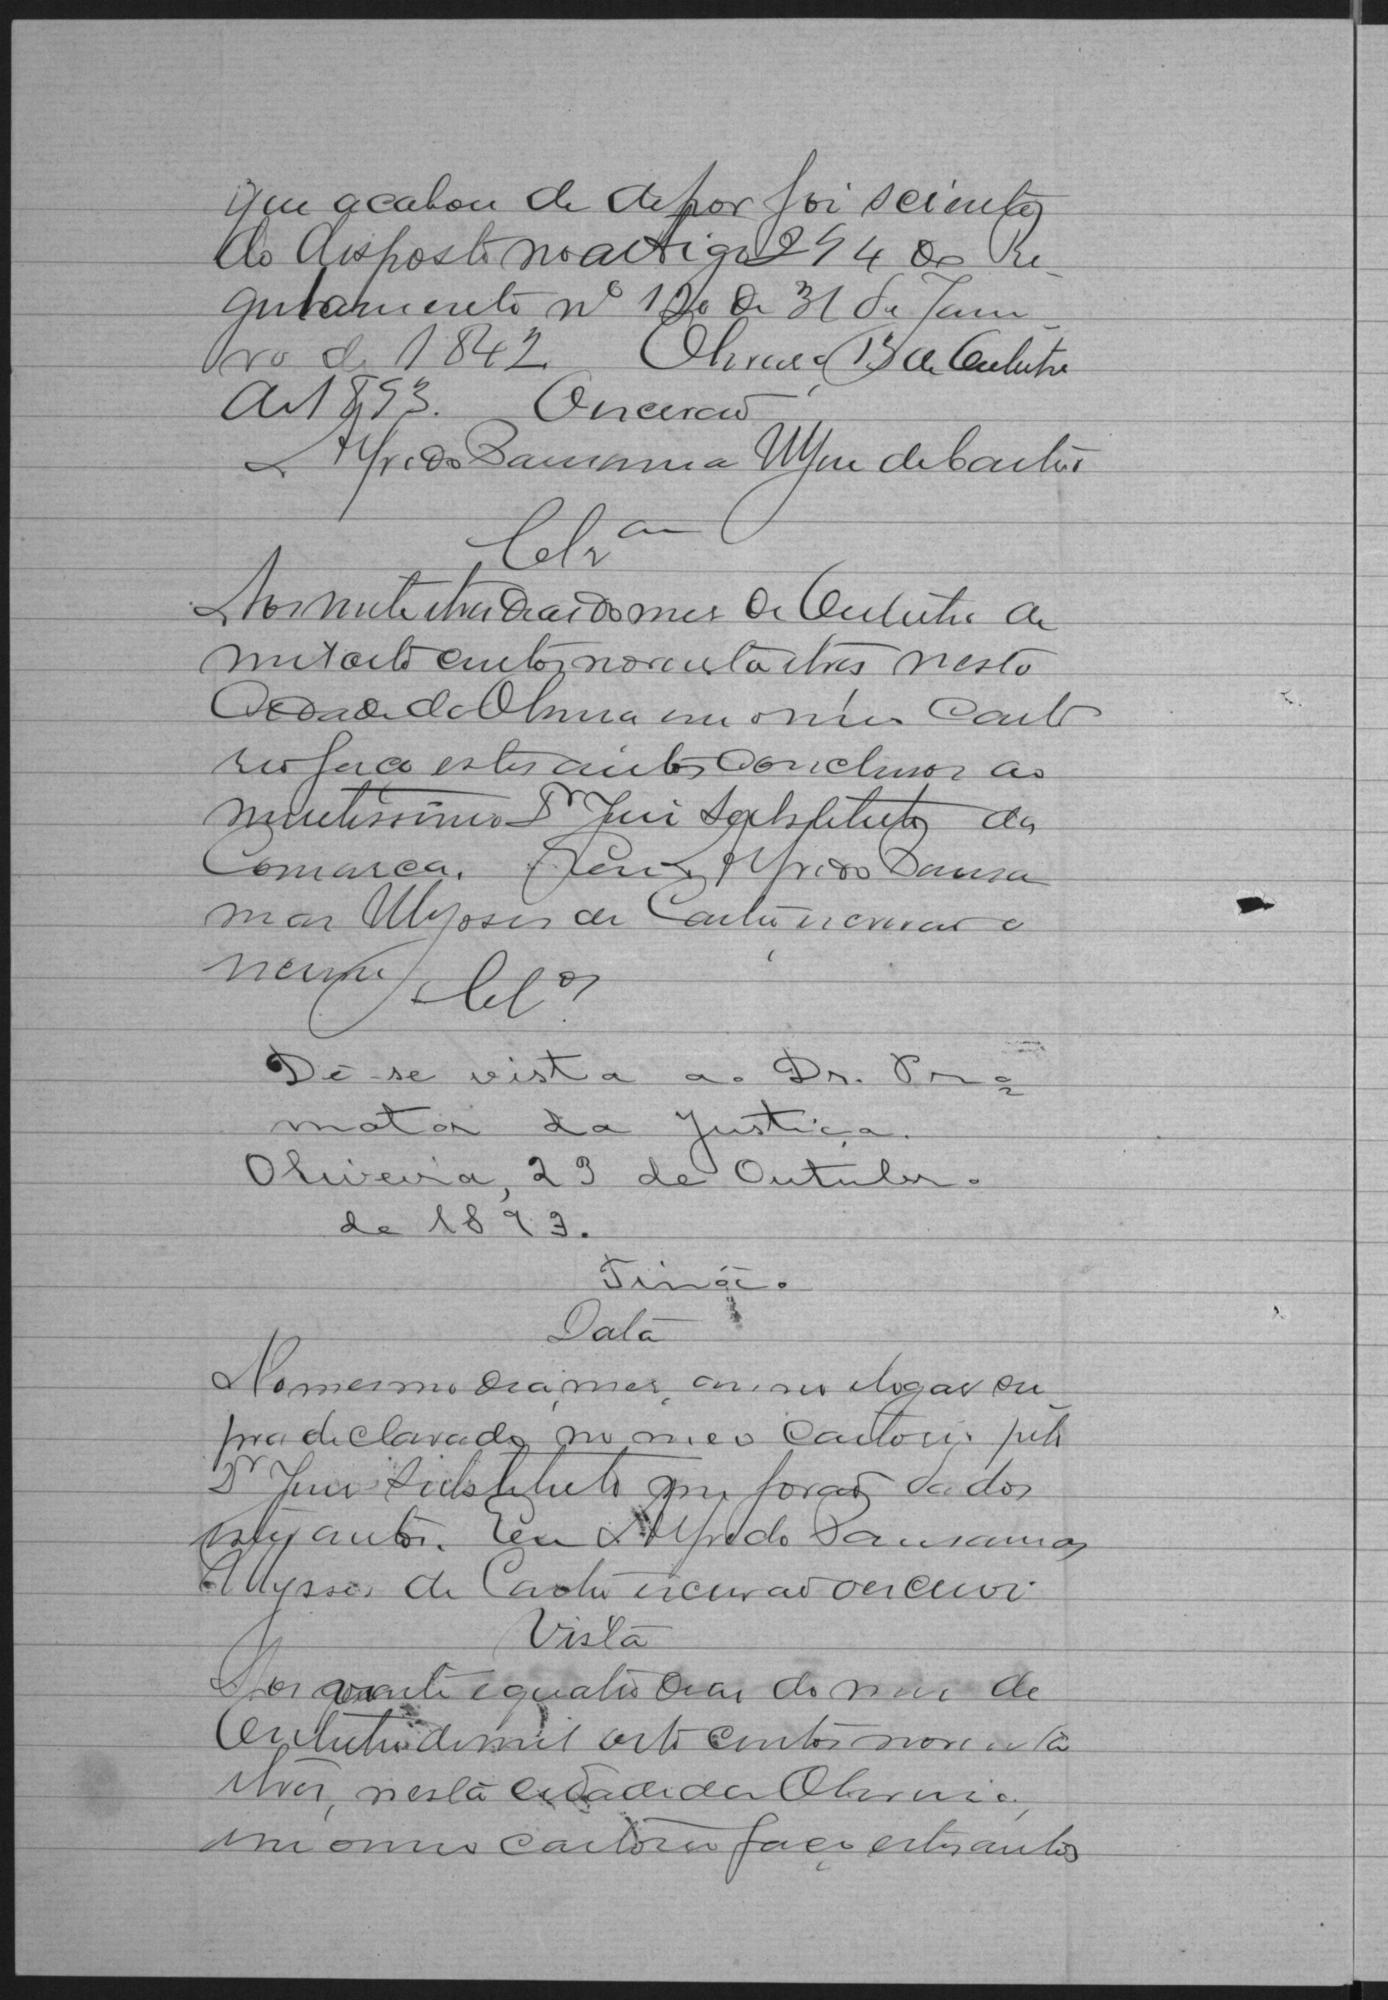 que acabou de depor foi sciente
do disposto no artigo 294 do Re-
gulamento nº 120 de 31 de Janei-
ro de 1842. Oliveira, 13 de Outubro
de 1893. O escrivão
Alfredo Pausanias Ulysses de Castro
Clsam
Aos vinte e tres dias do mes de Outubro de
mil oito centos noventa e tres nesta
Cidade de Oliveira em o meu Carto
rio faço estes autos conclusos ao
meritissimo Dr Juiz Substituto da
Comarca. Eu, Alfredo Pausa
nias Ulysses de Castro escrivão o
escrevi
Clos
Dê-se vista ao Dr. Pro=
motor da Justiça.
Oliveira, 23 de Outubro
de 1893.
Data
No mesmo dia, mes, anno e logar su
pra declarado, no meo cartorio pelo
Dr Juiz Substituto me forão dados
estes autos. Eu Alfredo Pausanias
Ulysses de Castro escrivão o escrevi
Vista
Aos vinte e quatro dias do mes de
Outubro de mil oito centos noventa
e tres, nesta cidade da Oliveira,
em o meu cartorio faço estes autos